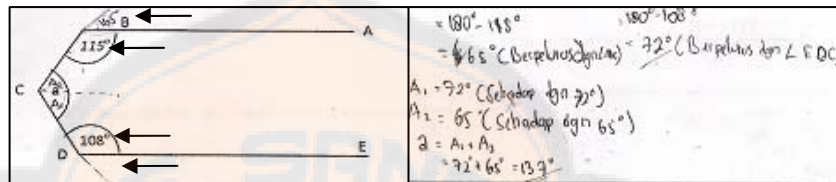 65°
B
A
115°
C
A₂
a
A₁
108°
D
E
= 180° - 115°
= 65° (Berpelurus dgn
180° - 108°
= 72° (Berpelurus dgn ∠ EDC)
A₁ = 72° (Sehadap dgn 72°)
A₂ = 65° (Sehadap dgn 65°)
a = A₁ + A₂
= 72° + 65° = 137°